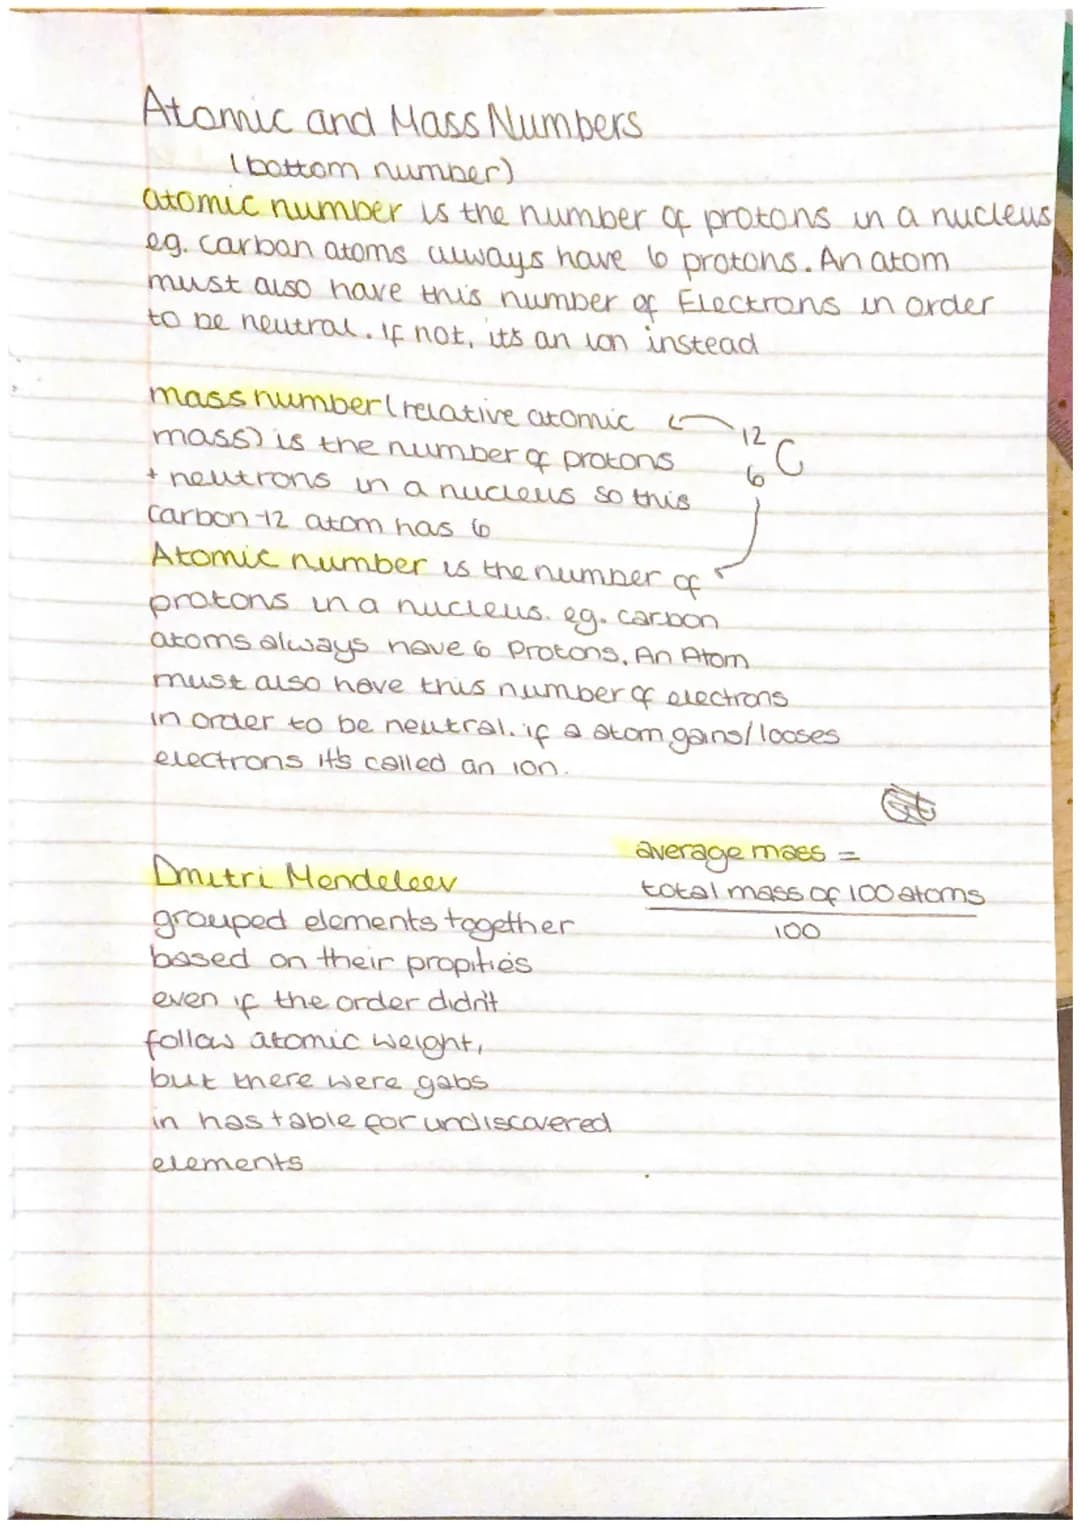 Atomic and Mass Numbers
(bottom number)
atomic number is the number of protons in a nucleus
eg. carbon atoms always have 6 protons. An atom
must also have this number of Electrons in order
to be neutral. if not, it's an ion instead
mass number (relative atomic
mass) is the number of protons
+ neutrons in a nucleus so this
carbon-12 atom has 6
12
C
6
Atomic number is the number of
protons in a nucleus. eg. carbon
atoms always have 6 Protons. An Atom
must also have this number of electrons
in order to be neutral. if a atom gains/looses
electrons it's called an ion.
average mass =
total mass of 100 atoms
100
Dmitri Mendeleev
grouped elements together
based on their propities
even if the order didn't
follow atomic weight,
but there were gabs
in has table for undiscovered
elements